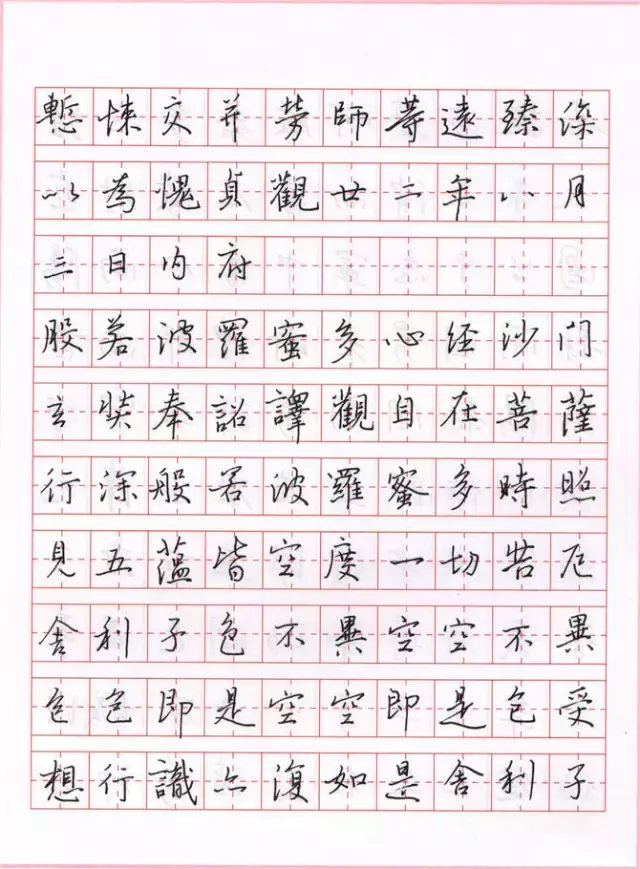 慙悚交并勞師等遠臻深
以為愧貞觀廿二年八月
三日内府
般若波羅蜜多心経沙门
玄奘奉詔譯觀自在菩薩
行深般若波羅蜜多時照
見五蘊皆空度一切苦厄
舍利子色不異空空不異
色色即是空空即是色受
想行識亦復如是舍利子